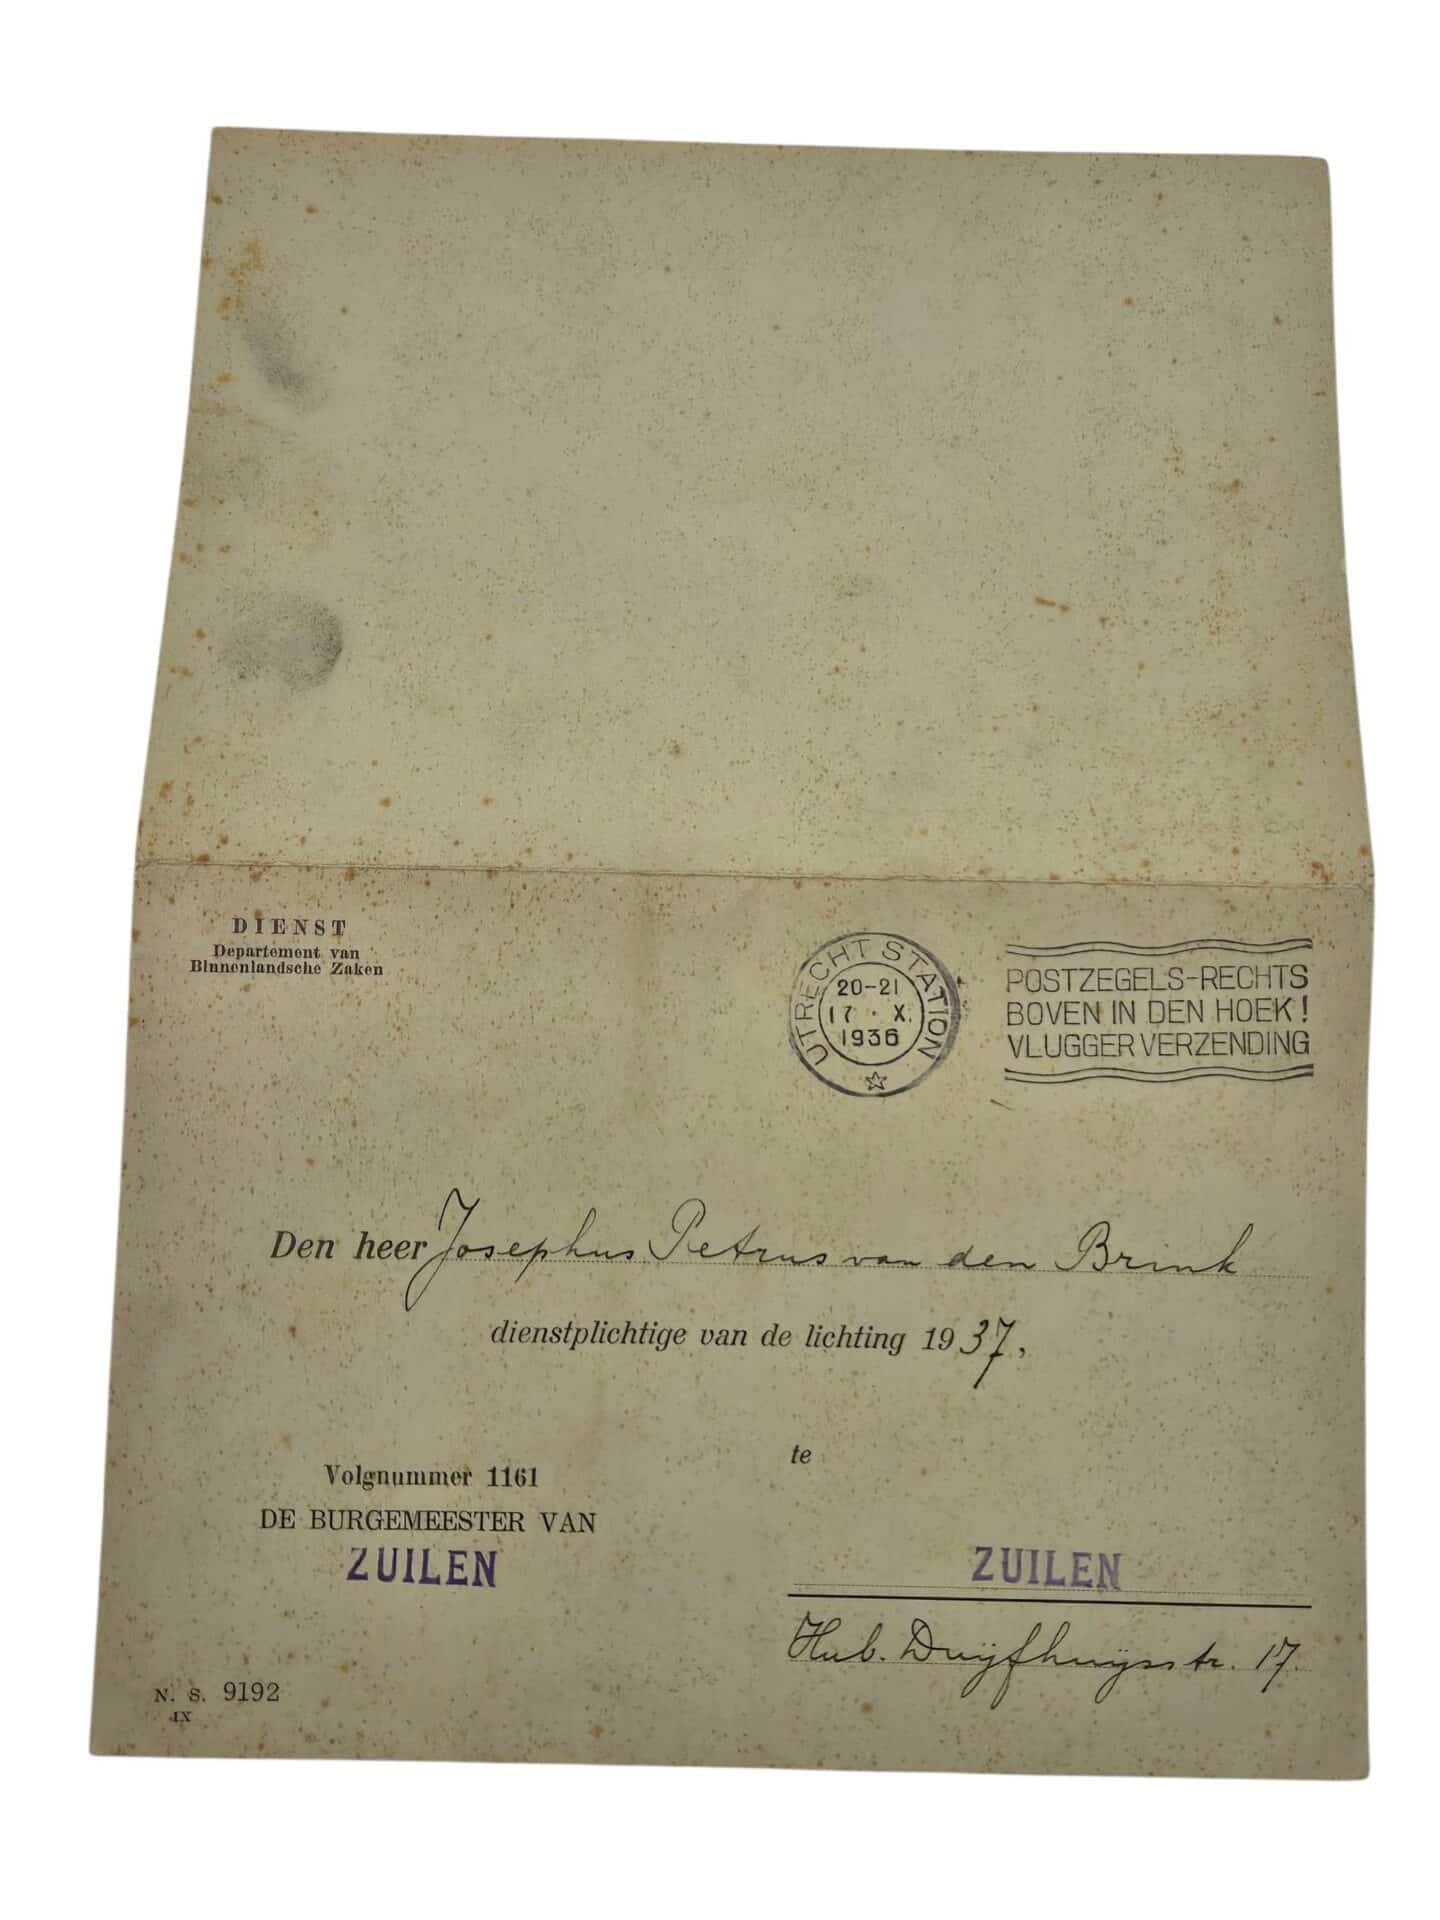 DIENST
Departement van
Binnenlandsche Zaken
UTRECHT STATION
20-21
17 · X.
1936
POSTZEGELS-RECHTS
BOVEN IN DEN HOEK!
VLUGGER VERZENDING
Den heer Josephus Petrus van den Brink
dienstplichtige van de lichting 1937,
te
Volgnummer 1161
DE BURGEMEESTER VAN
ZUILEN
ZUILEN
Hub. Duijfhuijsstr. 17.
N. S. 9192
IX